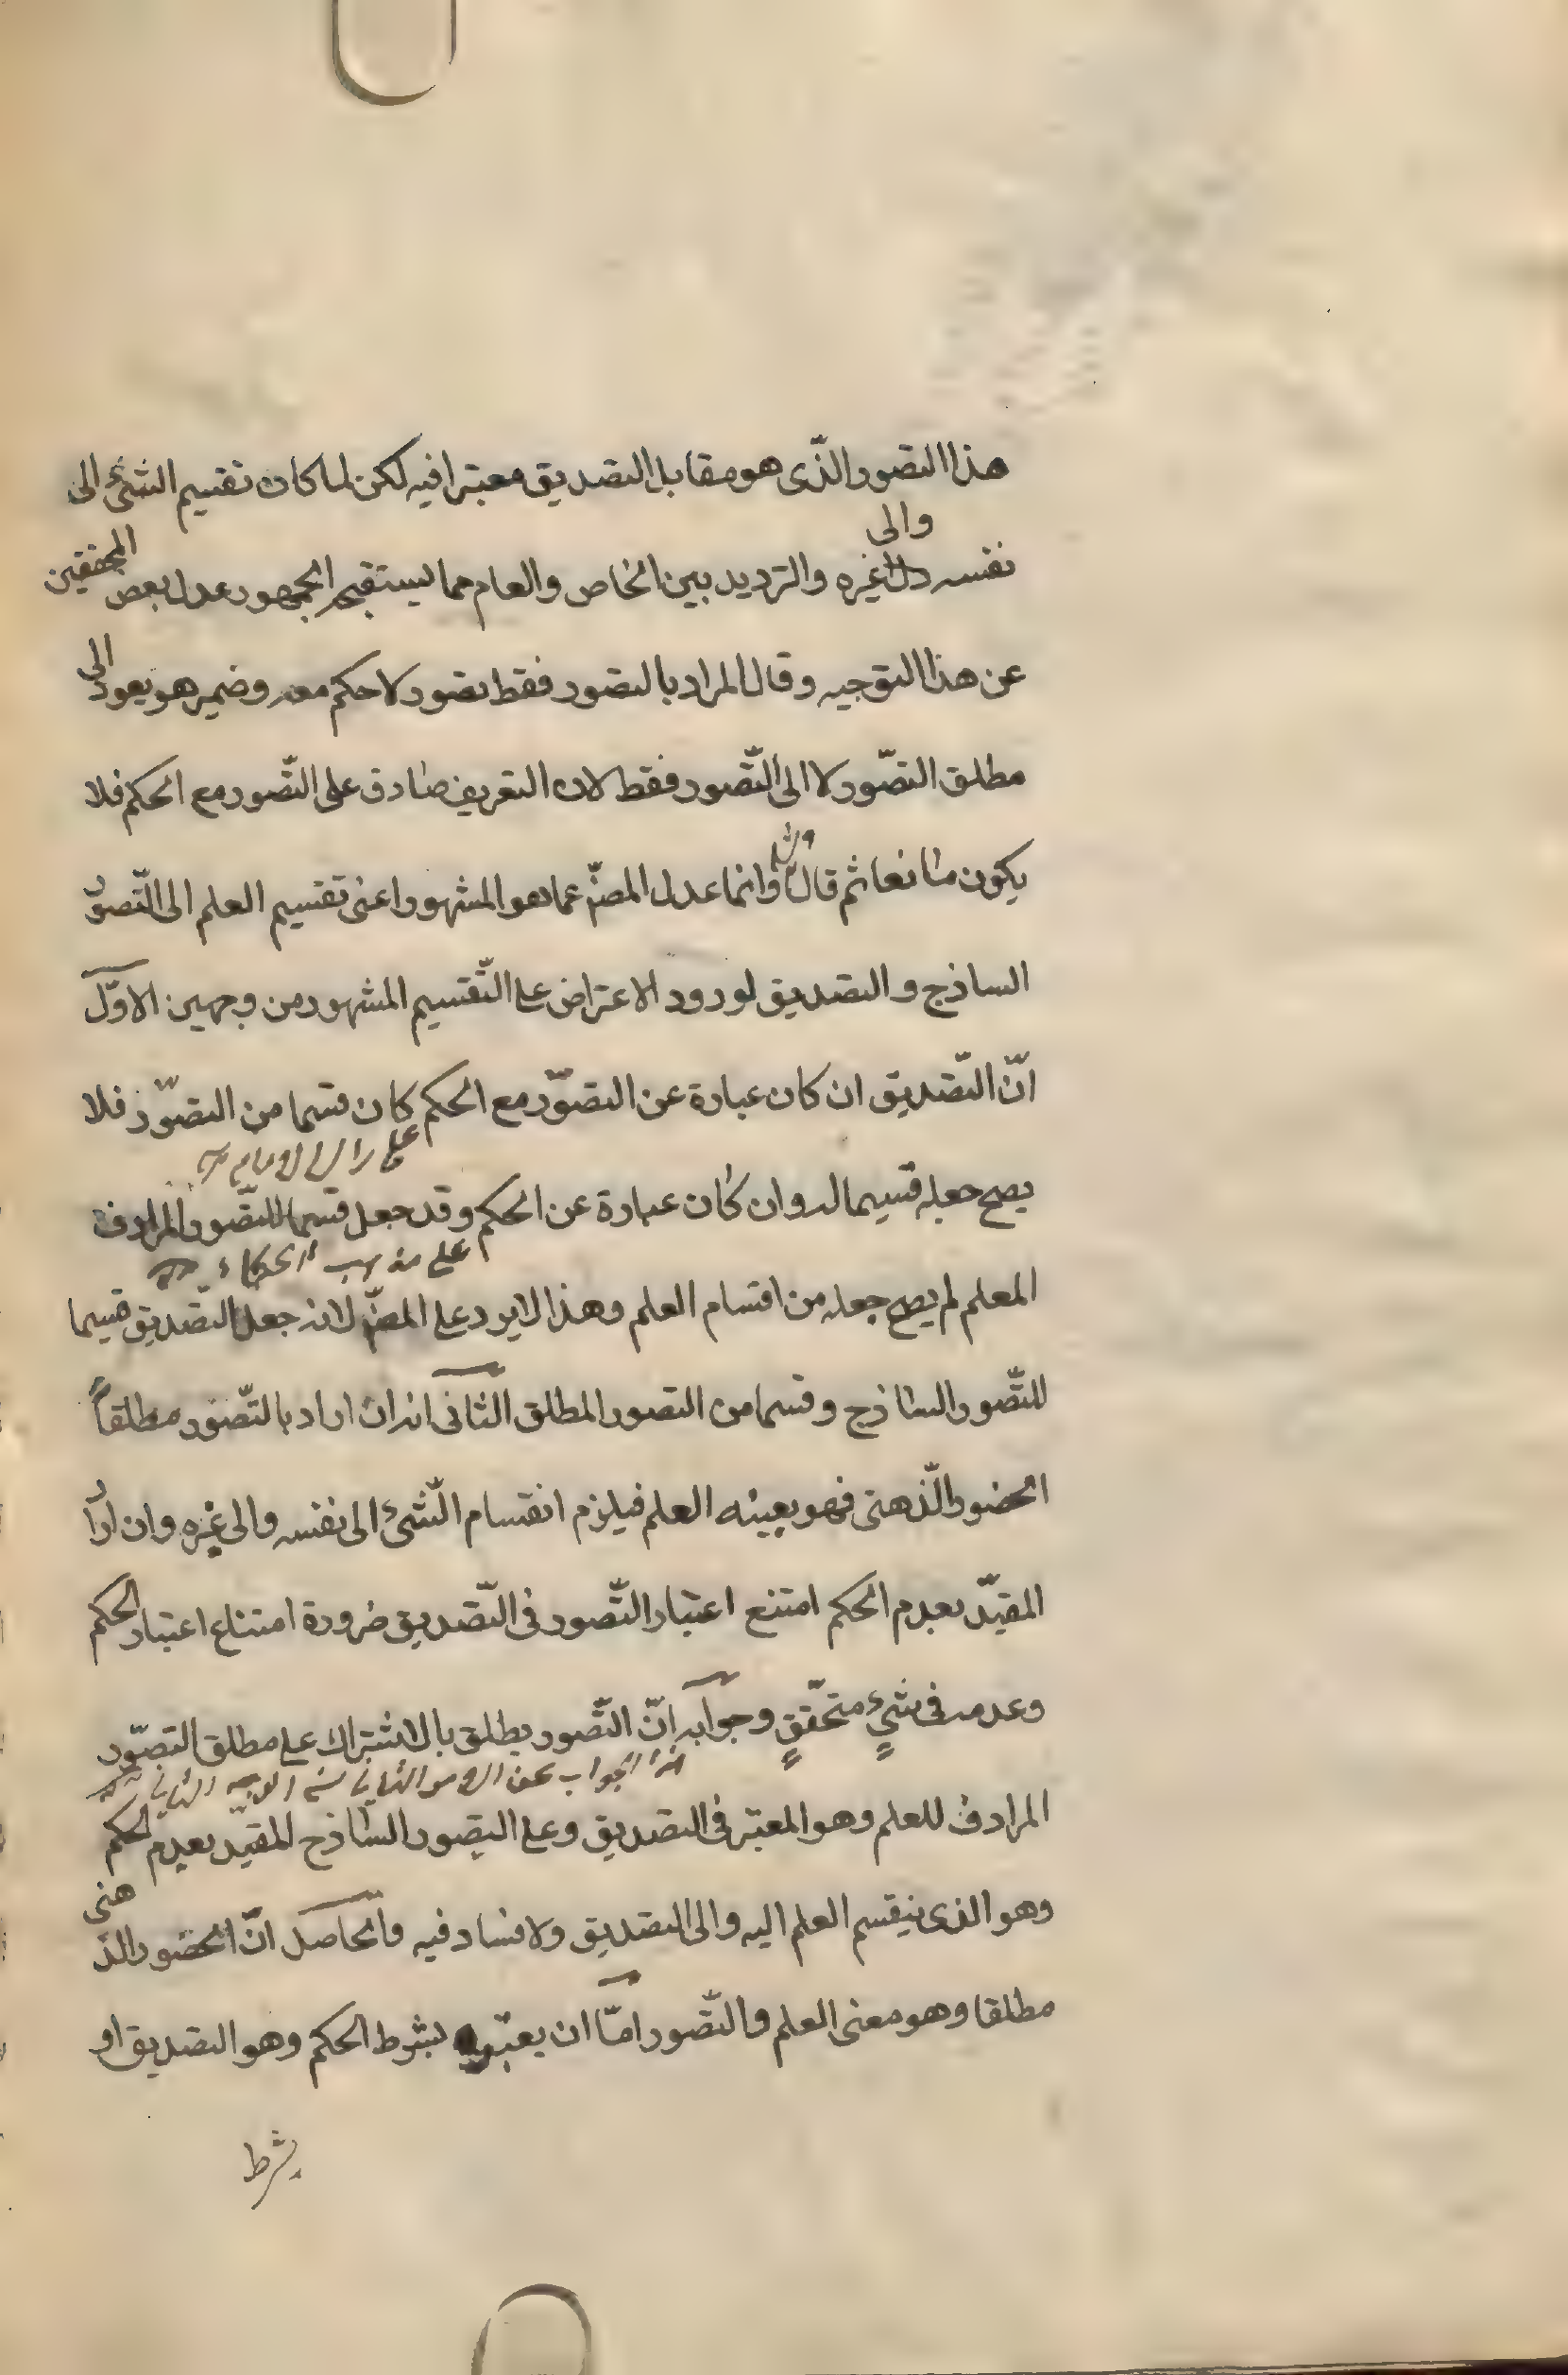 هذا التصور الذّى هو مقابل التصديق معتبرا فيه لكن لما كان تقسيم الشئ الى
والى
نفسه غيره والترديد بين الخاص والعام مما يستقبحه الجمهور عدل بعض المحققين
عن هذا التوجيه وقال المراد بالتصور فقط تصور لا حكم معه وضمير هو يعود الى
مطلق التصّور لا الى التّصور فقط لان التعريف صادق على التّصور مع الحكم فلا
يكون مانعا ثم قال وانما عدل المصنّ عما هو المشهور اعنى تقسيم العلم الى التّصور
الساذج والتصديق لورود الاعتراض على التّقسيم المشهور من وجهين الاوّل
انّ التّصديق ان كان عبارة عن التصوّر مع الحكم كان قسما من التصوّر فلا
على راى الامام
يصح جعله قسيما له وان كان عبارة عن الحكم وقد جعل قسما للتّصور المرادف
على مذهب الحكماء
المعلم لم يصح جعله من اقسام العلم وهذا لا يرد على المصنّ لانه جعل التّصديق قسيما
للتّصور الساذج وقسما من التصور المطلق الثّانى انه ان اراد بالتّصور مطلقاً
الحضور الّذهنى فهو بعينه العلم فيلزم انقسام الّشئ الى نفسه والى غيره وان اراد
المقيّد بعدم الحكم امتنع اعتبار التّصور فى التّصديق ضرورة امتناع اعتبار الحكم
وعدمه فى شىءٍ متحّققٍ وجوابه انّ التّصور يطلق بالاشتراك على مطلق التصّور
هذا الجواب عن الامر الثانى من الوجه الثانى
المرادف للعلم وهو المعتبر فى التصديق وعلى التصور الساذج المقيّد بعدم الحكم
وهو الذى ينقسم العلم اليه والى التصديق ولا فساد فيه والحاصل انّ الحضور الذهنى
مطلقا وهو معنى العلم والتّصور امّا ان يعتبر بشرط الحكم وهو التصديق او
بشرط